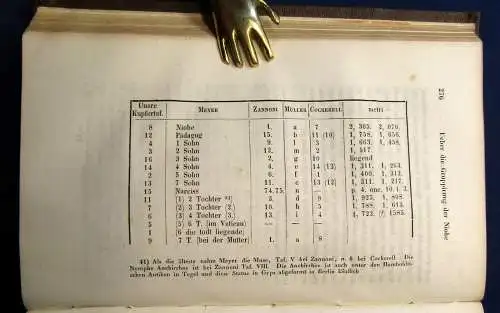 276
Ueber die Gruppirung der Niobe
Unsre Kupfertaf. MEYER ZANNONI MÜLLER COCKERELL metri
8 Niobe 1. a 7 2, 365. 2, 076.
12 Pädagog 15. b 11 (10) 1, 758. 1, 656.
4 1 Sohn 9. l 3 1, 663. 1, 458.
3 2 Sohn 12. m 2 1, 517.
16 3 Sohn 2. g 10 liegend
14 4 Sohn e 14 (13) 1, 311. 1, 263.
2 5 Sohn f 1 1, 400. 1, 312.
13 7 Sohn c 13 (12) 1, 311. 1, 217.
15 Narciss 74.75. n — p. 4. onc. 10. l. 3.
11 (1) 2 Tochter d 9 1, 925. 1, 898.
7 (2) 3 Tochter (2.) 10. h 5 1, 788. 1, 613.
6 (3) 4 Tochter (3. 13. i 4 1, 722. 1583.
5 5) 6 T. (im Vatican)
1 6 die todt liegende;
9 7 T. (bei der Mutter) 1. a 8
41) Als die älteste nahm Meyer die Muse, Taf. V bei Zannoni, n. 6 bei Cockerell. Die
Nymphe Anchirrhoe ist bei Zannoni Taf. VIII. Die Anchirrhoe ist auch unter den Humboldti-
schen Antiken in Tegel und diese Statue in Gyps abgeformt in Berlin käuflich